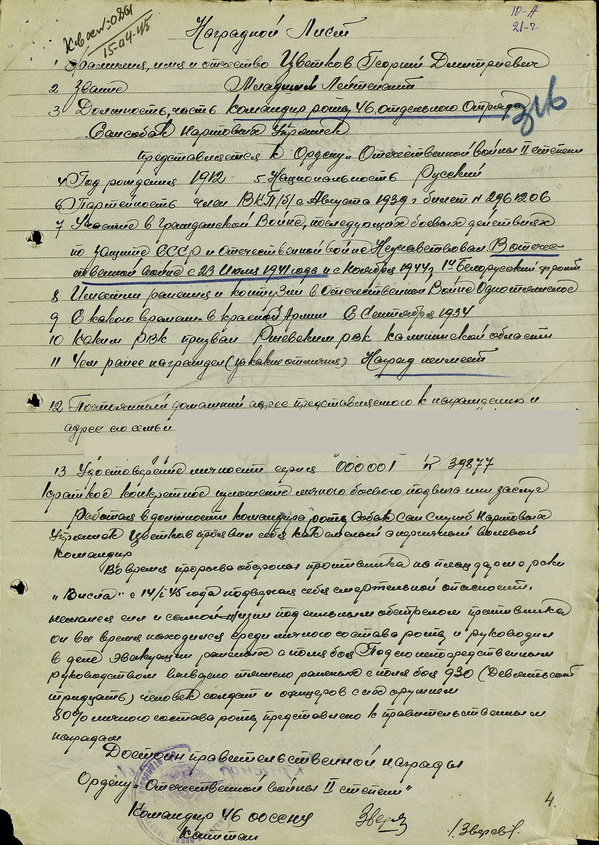 К вх №: 0861
15-04-45
10-А
21-г
Наградной Лист
1 Фамилия, имя и отчество Цветков Георгий Дмитриевич
2 Звание Младший Лейтенант
3 Должность, часть командир роты 46, отдельного Отряда
316
Нартовых Упряжек
представляется к Ордену „Отечественной войны II степени
4 Год рождения 1912 5 Национальность Русский
6 Партийность член ВКП/б/ с Августа 1939 г билет N 2961206
7 Участие в гражданской Войне, последующих боевых действиях
по защите СССР и отечественной войне Неучавствовал. В отече-
ственной войне с 23 Июня 1941 года и с Ноября 1944 г 1й Белорусский фронт
8 Имеет ли ранения и контузии в Отечественной Войне Одно тяжелое
9 С какого времени в красной Армии С Сентября 1934
10 Каким РВК призван Ржевским рвк калининской области
11 Чем ранее награжден (за какие отличия) Наград неимеет
12 Постоянный домашний адрес представляемого к награждению и
адрес его семьи
13 Удостоверение личности серия "000001 № 39877
Краткое конкретное изложение личного боевого подвига или заслуг
Работая в должности командира роты Собак Сан Служб Нартовых
Упряжек Цветков проявил себя как смелый энергичный волевой
командир
Во время прорыва обороны противника на плацдарме реки
„Висла" с 14/I-45 года подвергая себя смертельной опасности,
нежалея сил и самой жизни под сильным обстрелом противника
он все время находился среди личного состава роты и руководил
в деле эвакуации раненых с поля боя Под его непосредственным
руководством вывезено тяжело раненых с поля боя 930 (Девятьсот
тридцать) человек солдат и офицеров с их оружием
80% личного состава роты представлено к правительственным
наградам
Достоин правительственной награды
Ордену „Отечественной войны II степени"
Командир 46
Капитан
/Зверев/
4.